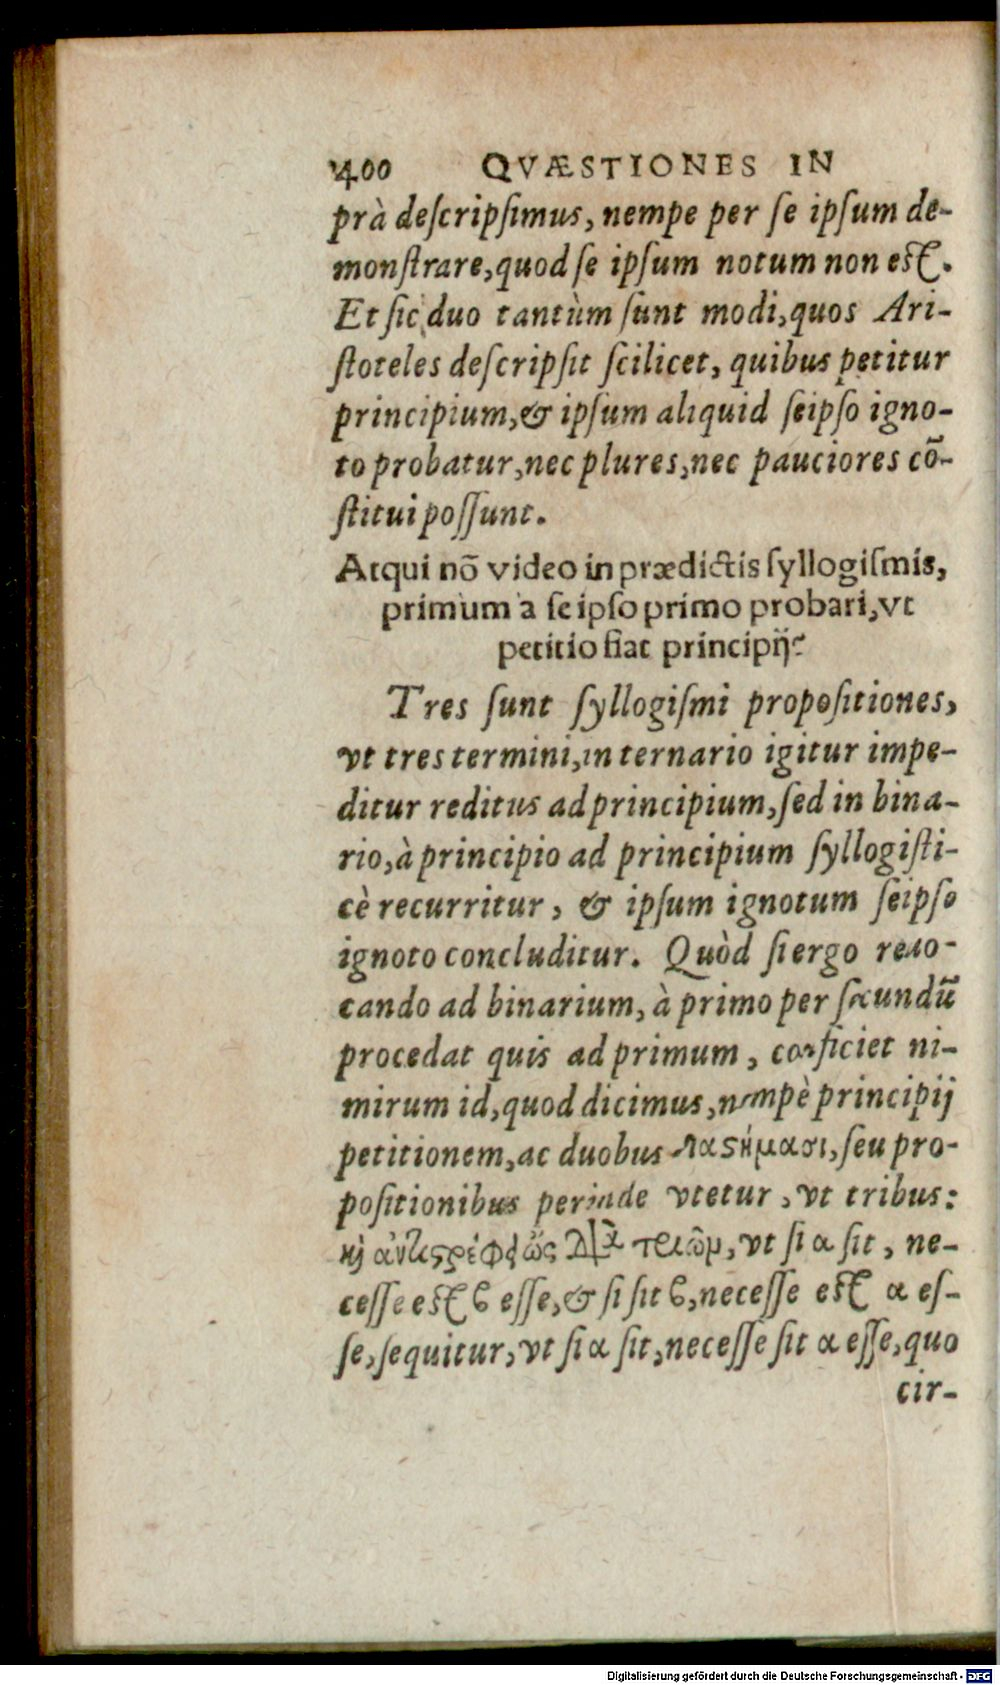 400 QVÆSTIONES IN
prà deſcripſimus, nempe per ſe ipſum de-
monſtrare, quod ſe ipſum notum non eſt.
Et ſic duo tantùm ſunt modi, quos Ari-
ſtoteles deſcripſit ſcilicet, quibus petitur
principium, & ipſum aliquid ſeipſo igno-
to probatur, nec plures, nec pauciores cō-
ſtitui poſſunt.
Atqui nō video in prædictis ſyllogiſmis,
primum a ſe ipſo primo probari, vt
petitio fiat principij?
Tres ſunt ſyllogiſmi propoſitiones,
vt tres termini, in ternario igitur impe-
ditur reditus ad principium, ſed in bina-
rio, à principio ad principium ſyllogiſti-
cè recurritur, & ipſum ignotum ſeipſo
ignoto concluditur. Quòd ſi ergo reuo-
cando ad binarium, à primo per ſecundū
procedat quis ad primum, conficiet ni-
mirum id, quod dicimus, nempè principij
petitionem, ac duobus ſeu pro-
poſitionibus perinde vtetur, vt tribus:
vt ſi α ſit, ne-
ceſſe eſt ϐ eſſe, & ſi ſit ϐ, neceſſe eſt α eſ-
ſe, ſequitur, vt ſi α ſit, neceſſe ſit α eſſe, quo
cir-
Digitalisierung gefördert durch die Deutsche Forschungsgemeinschaft - DFG